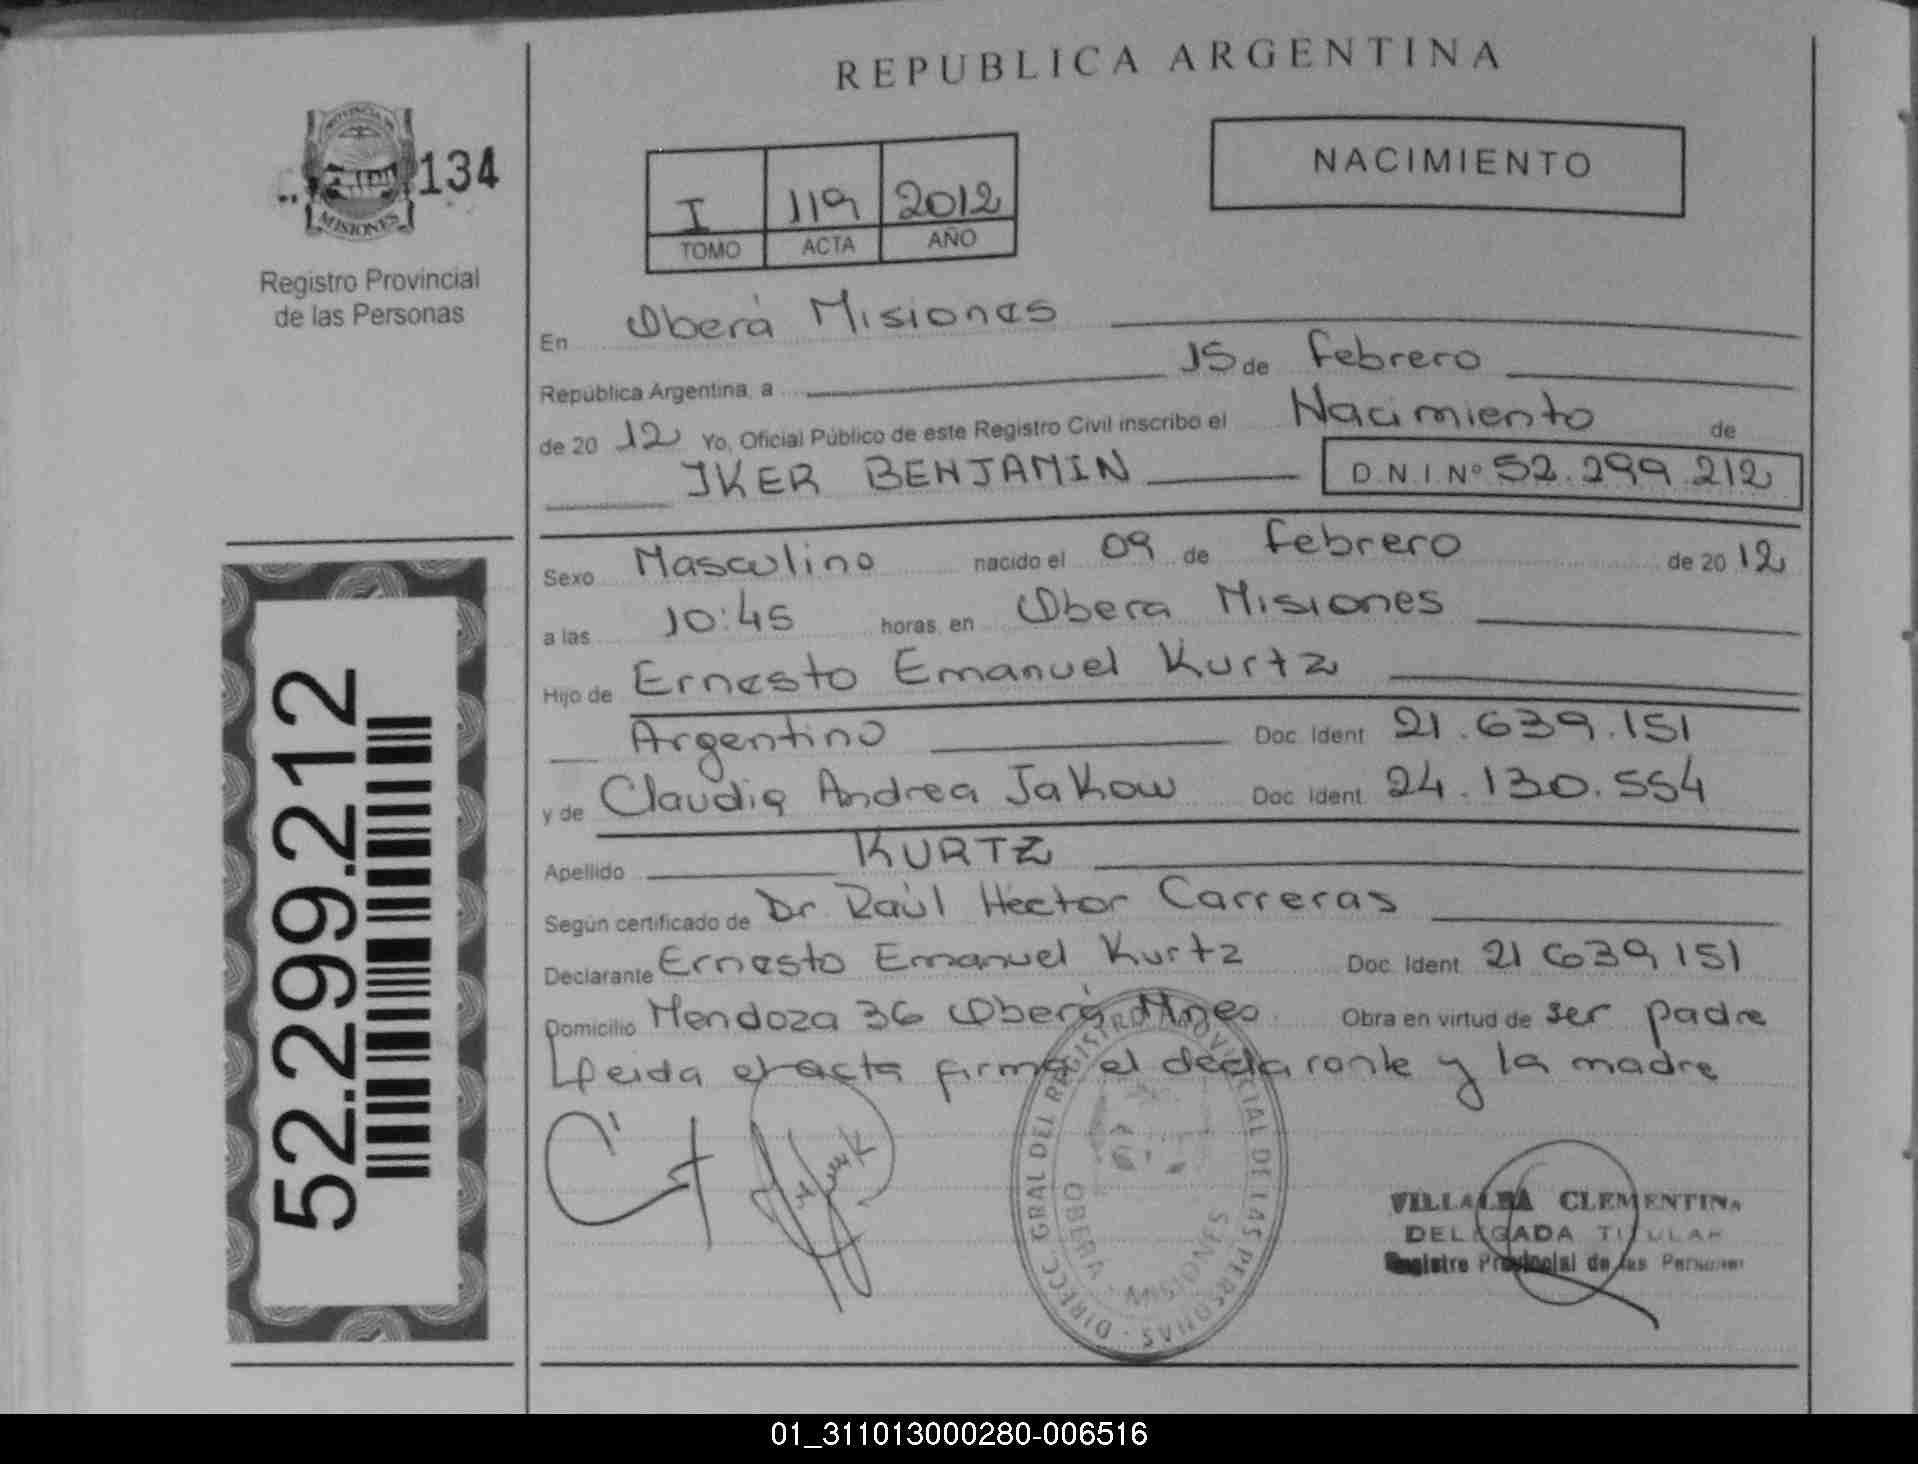 REPUBLICA ARGENTINA
PROVINCIA DE
MISIONES
134
Registro Provincial
de las Personas
I 119 2012
TOMO ACTA AÑO
NACIMIENTO
En Oberá Misiones
República Argentina, a 15 de Febrero
de 20 12 Yo, Oficial Público de este Registro Civil inscribo el Nacimiento de
IKER BENJAMIN D.N.I Nº 52.299.212
Sexo Masculino nacido el 09 de Febrero de 20 12
a las 10:45 horas, en Obera Misiones
Hijo de Ernesto Emanuel Kurtz
Argentino Doc. Ident 21.639.151
y de Claudia Andrea Jakow Doc. Ident. 24.130.554
Apellido KURTZ
Según certificado de Dr Raúl Hector Carreras
Declarante Ernesto Emanuel Kurtz Doc. Ident. 21 639 151
Domicilio Mendoza 36 Oberá Mnes. Obra en virtud de ser padre
Leida el acta firma el declarante y la madre
52.299.212
DIRECC. GRAL DEL REGISTRO PROVINCIAL DE LAS PERSONAS
OBERA - MISIONES
VILLALBA CLEMENTINA
DELEGADA TITULAR
Registro Provincial de las Personas
01_311013000280-006516